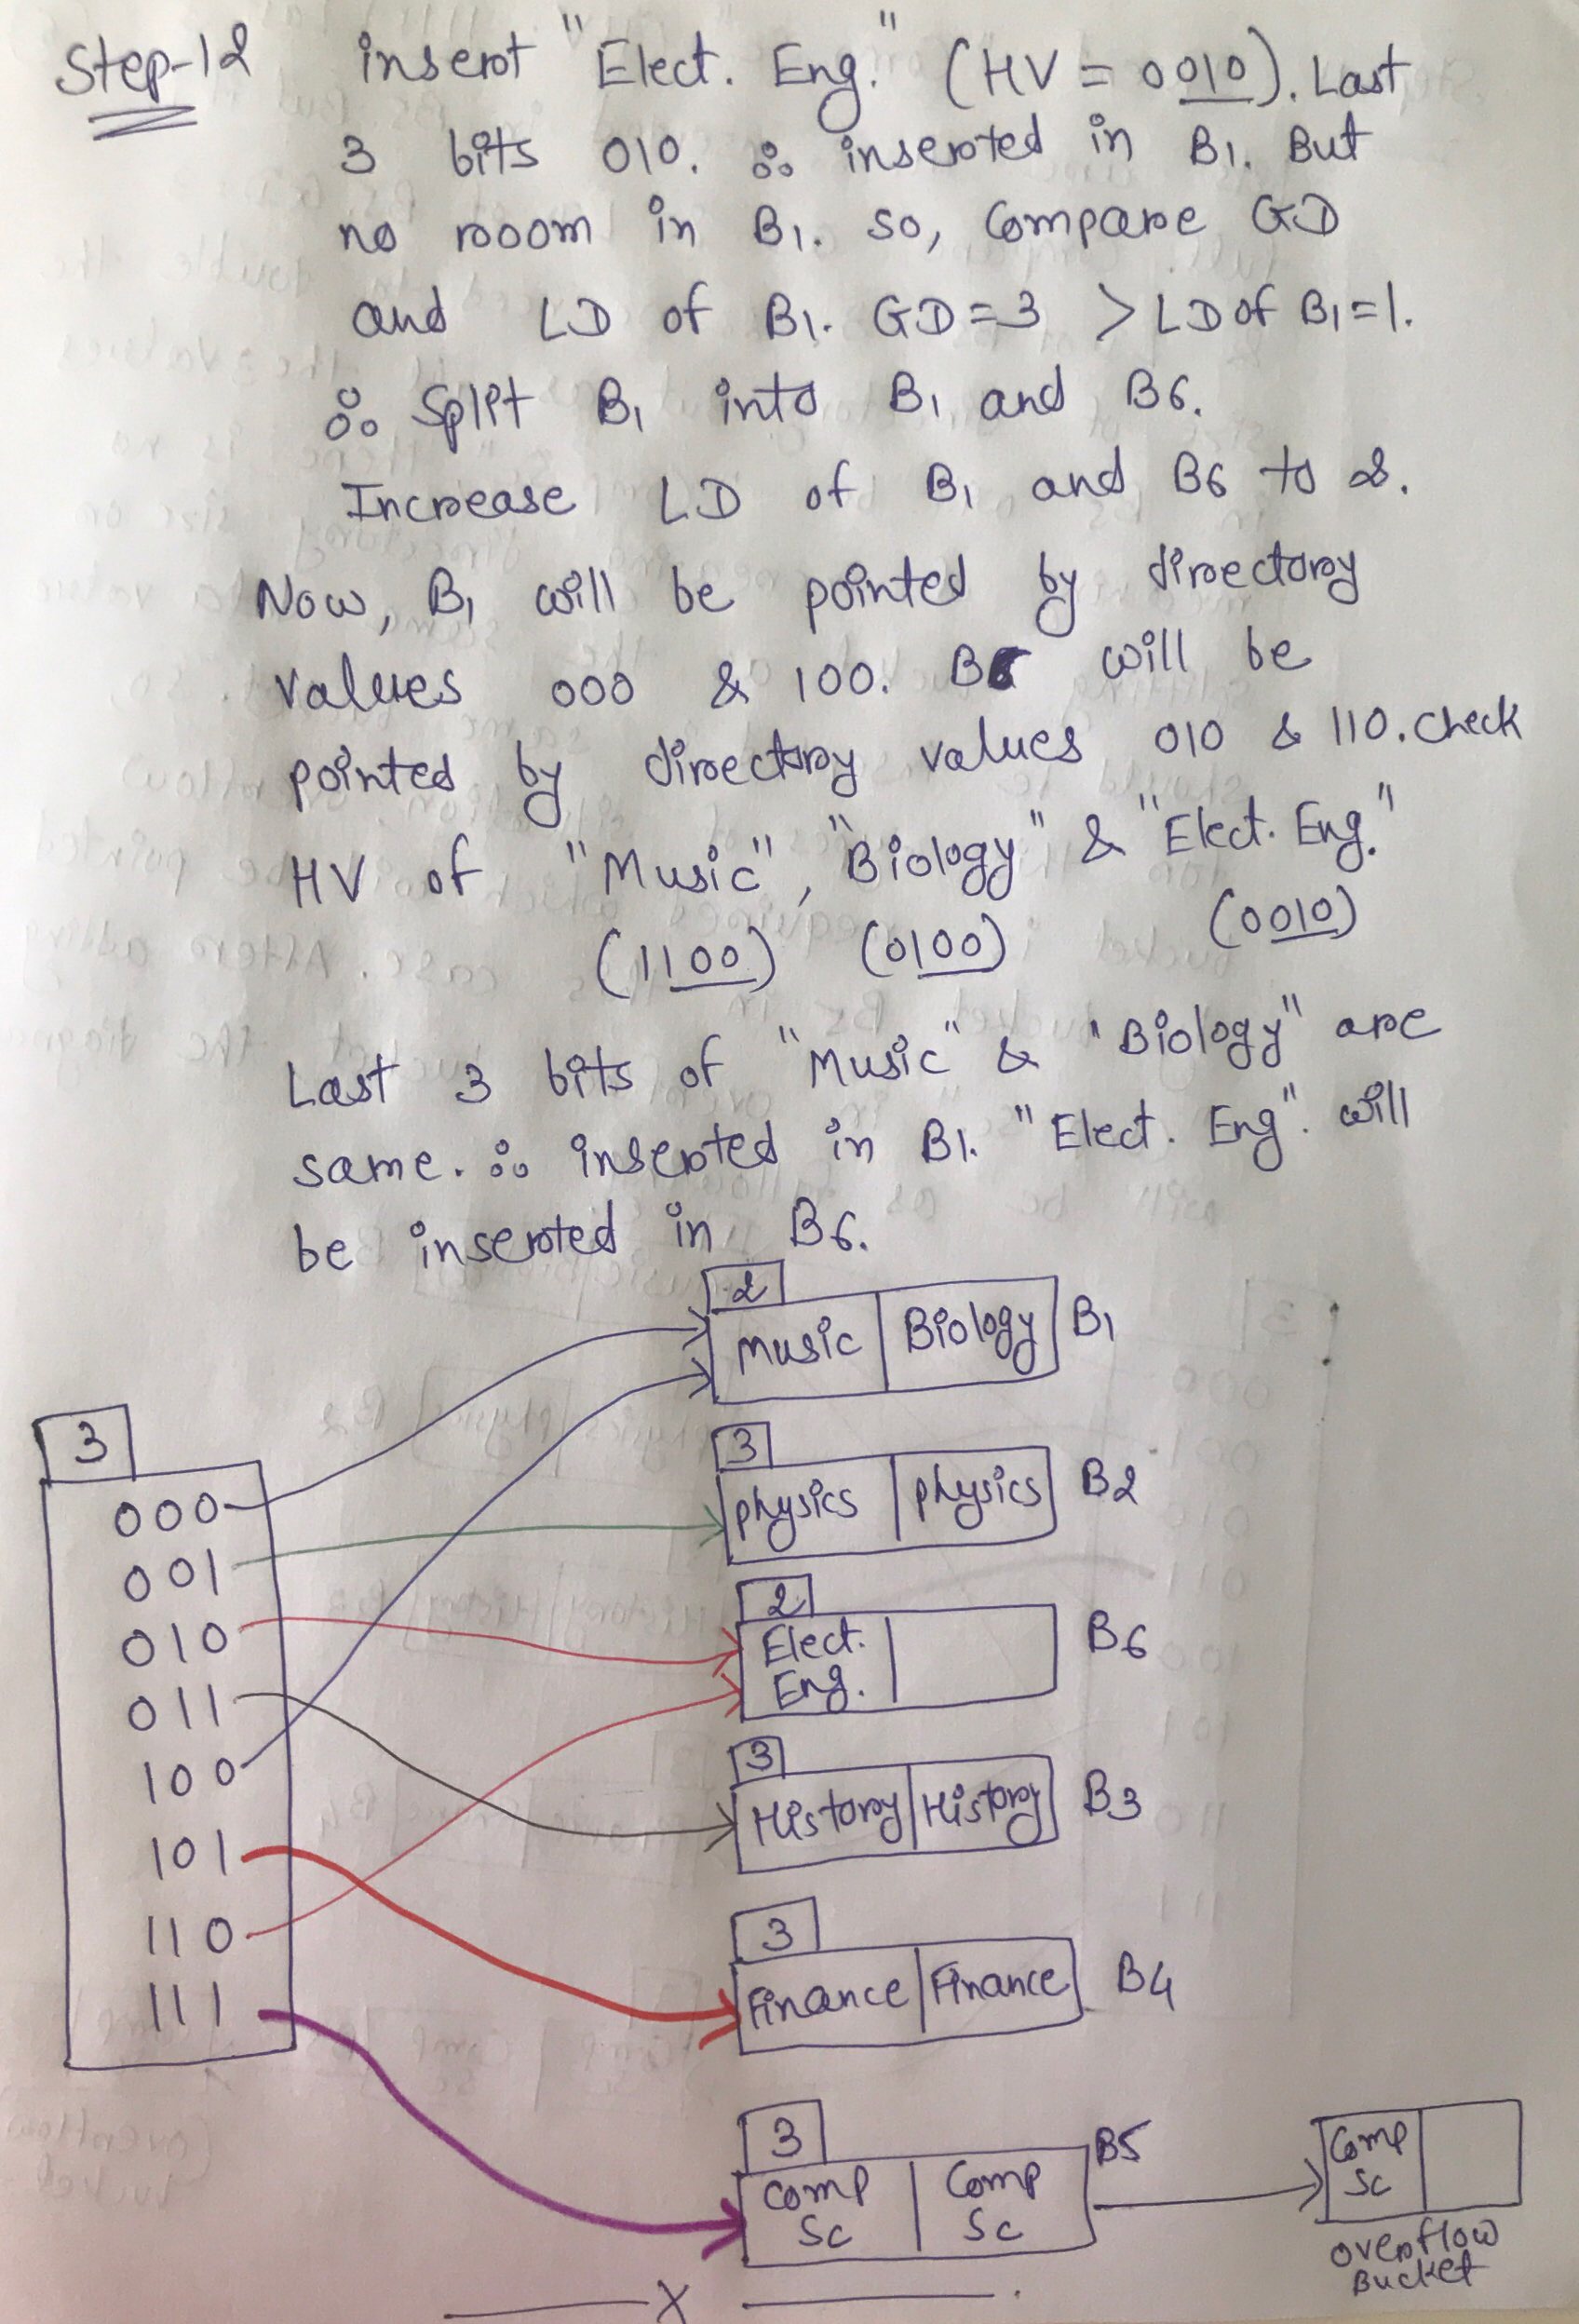 Step-12 insert "Elect. Eng." (HV = 0010). Last
3 bits 010. ∴ inserted in B1. But
no rooom in B1. So, Compare GD
and LD of B1. GD = 3 > LD of B1 = 1.
∴ Split B1 into B1 and B6.
Increase LD of B1 and B6 to 2.
Now, B1 will be pointed by directory
values 000 & 100. B6 will be
pointed by directory values 010 & 110. check
HV of "Music", "Biology" & "Elect. Eng."
(1100) (0100) (0010)
Last 3 bits of "Music" & "Biology" are
same. ∴ inserted in B1. "Elect. Eng". will
be inserted in B6.
2
Music Biology B1
3
000
001
010
011
100
101
110
111
3
physics physics B2
2
Elect. Eng. B6
3
History History B3
3
Finance Finance B4
3
Comp Sc Comp Sc B5
Comp Sc
Overflow
Bucket
X